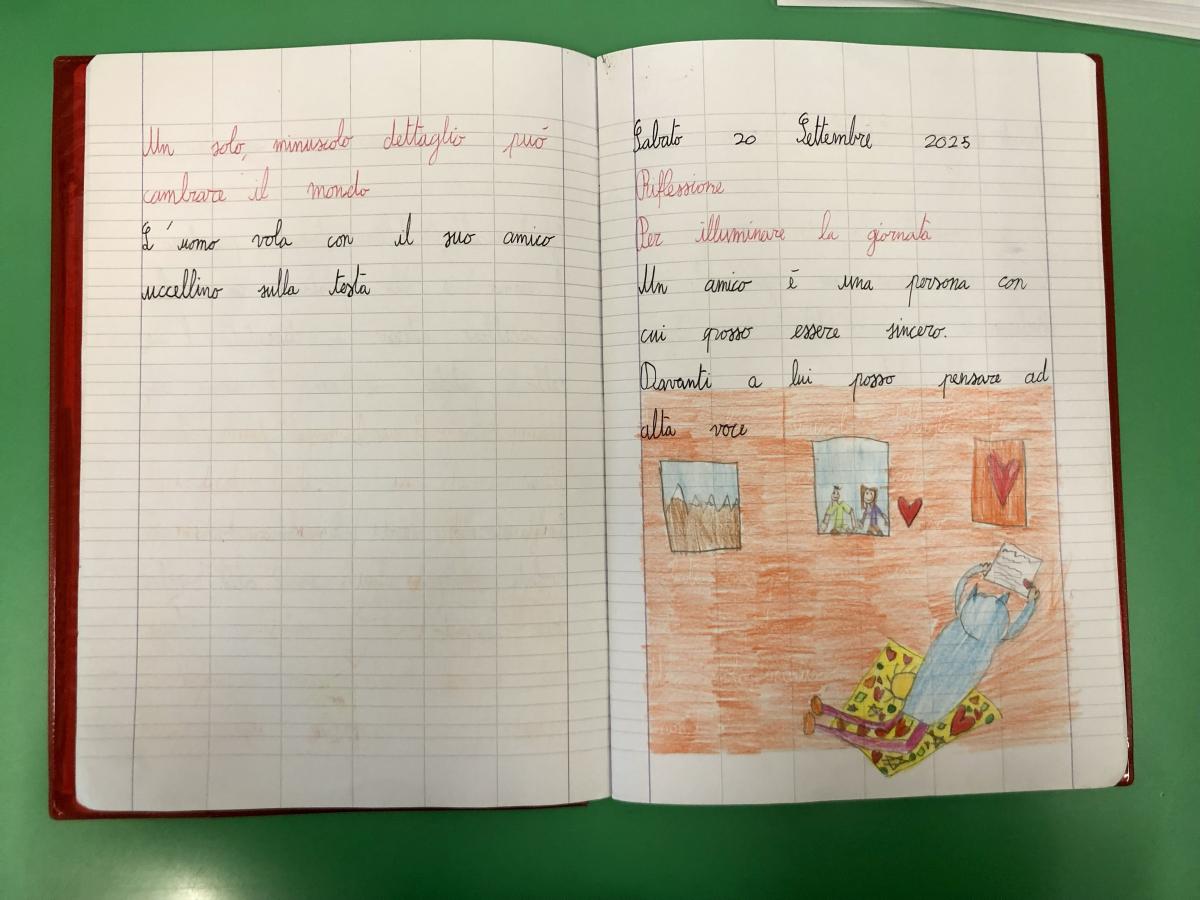 Un solo, minuscolo dettaglio può
cambiare il mondo
L'uomo vola con il suo amico
uccellino sulla testa
Sabato 20 Settembre 2025
Riflessione
Per illuminare la giornata
Un amico è una persona con
cui posso essere sincero.
Davanti a lui posso pensare ad
alta voce